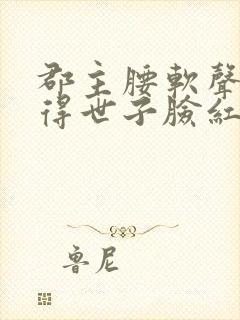 郡主腰軟聲
得世子臉紅
魯尼